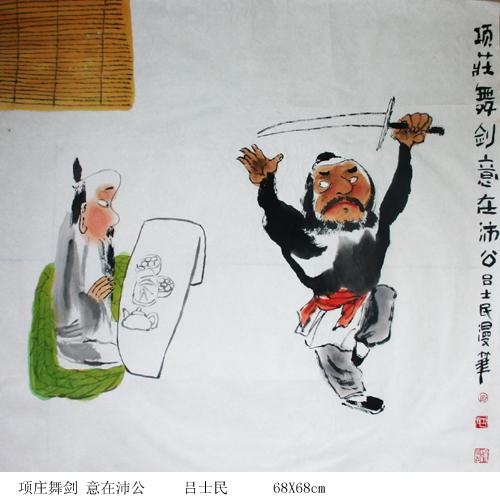 项莊舞剑意在沛公 吕士民漫筆
项庄舞剑 意在沛公 吕士民 68X68cm